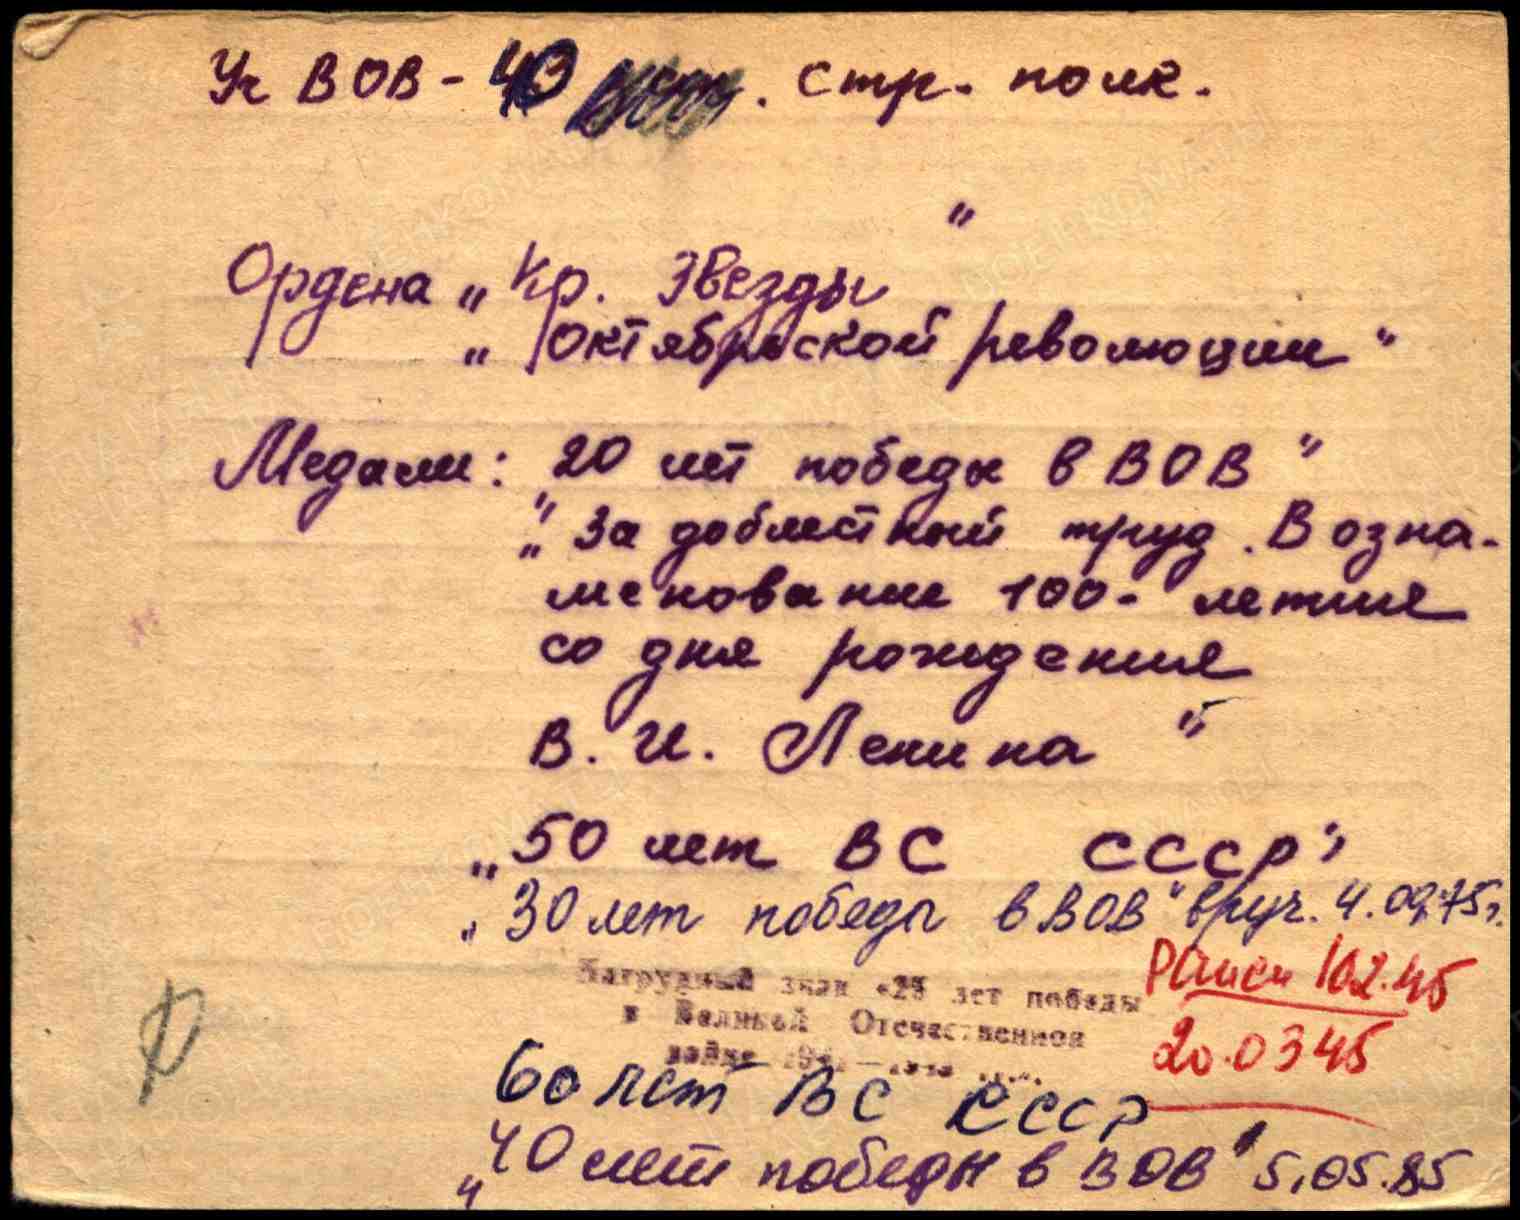 Уч ВОВ - 40 . стр. полк.
Ордена „Кр. Звезды"
„Октябрьской революции"
Медали: "20 лет победы в ВОВ"
„За доблестный труд. В озна-
менование 100-летия
со дня рождения
В. И. Ленина"
„50 лет ВС СССР"
„30 лет победы в ВОВ" вруч. 4.09.75г.
Нагрудный знак «25 лет победы
в Великой Отечественной
войне
Ранен 10.2.45
20.03 45
60 лет ВС СССР
„40 лет победы в ВОВ" 5.05.85